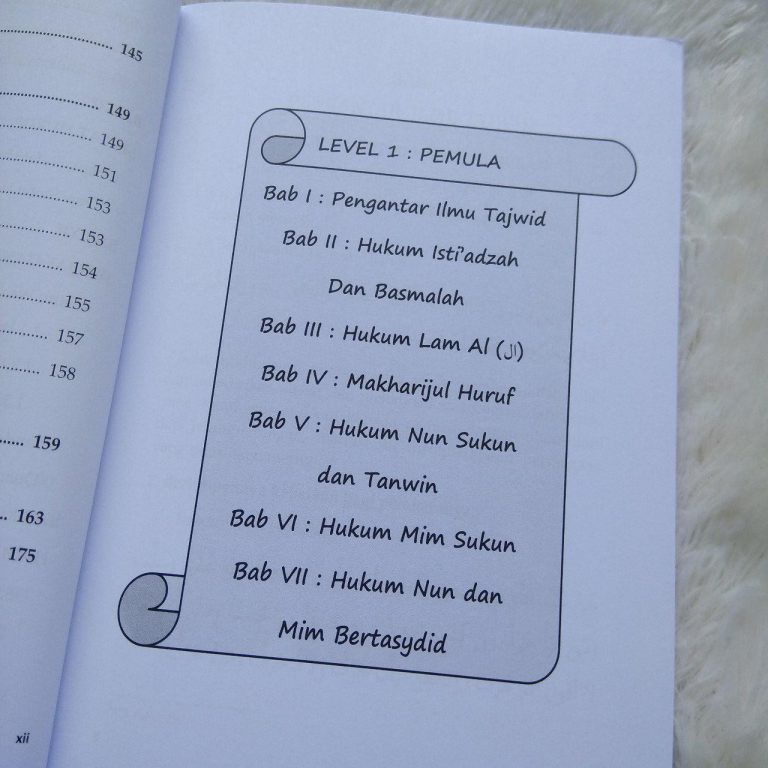 145
149
149
151
153
153
154
155
157
158
159
163
175
xii
LEVEL 1 : PEMULA
Bab I : Pengantar Ilmu Tajwid
Bab II : Hukum Isti'adzah
Dan Basmalah
Bab III : Hukum Lam Al (ال)
Bab IV : Makharijul Huruf
Bab V : Hukum Nun Sukun
dan Tanwin
Bab VI : Hukum Mim Sukun
Bab VII : Hukum Nun dan
Mim Bertasydid